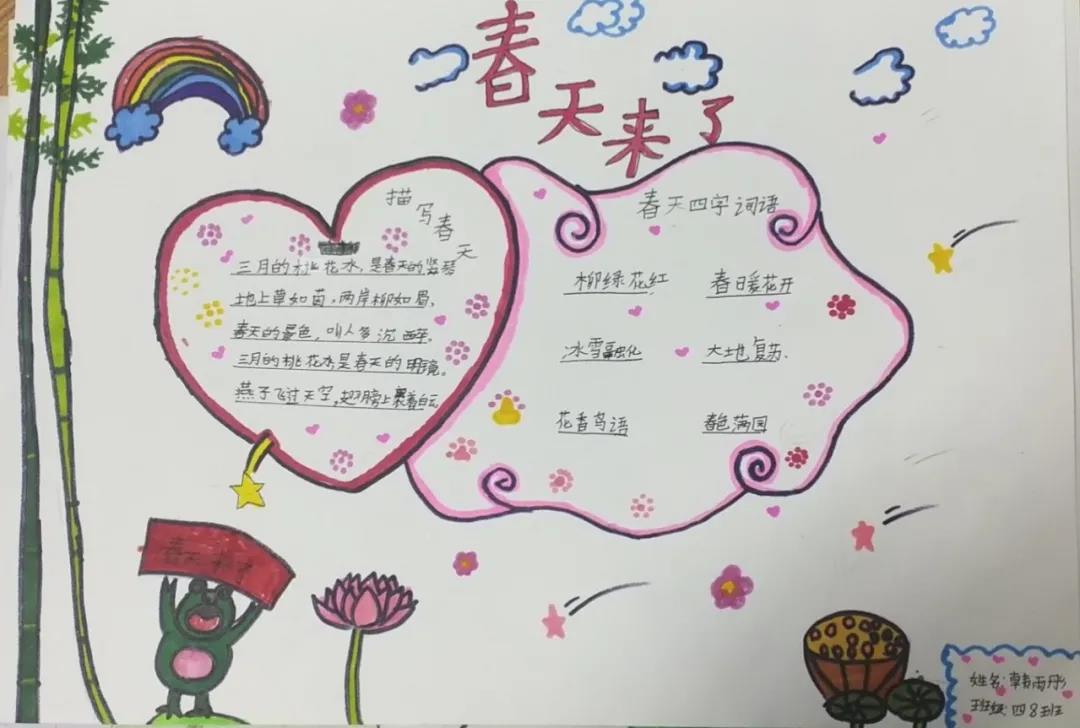 春天来了
描写春天
三月的桃花水,是春天的竖琴
地上草如茵,两岸柳如眉,
春天的景色,叫人多沉醉。
三月的桃花水是春天的明镜。
燕子飞过天空,翅膀上裹着白云
春天四字词语
柳绿花红 春日暖花开
冰雪融化 大地复苏.
花香鸟语 春色满园
春天来了
姓名:韩雨彤
班级:四8班